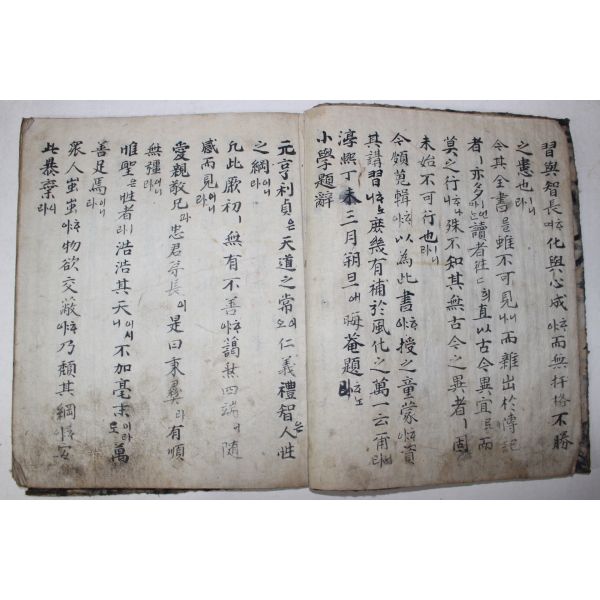 習與智長ᄒᆞ야化與心成ᄒᆞ야而無扞格不勝
之患也ㅣ니라
今其全書를雖不可見이나而雜出於傳記
者ㅣ亦多언마는讀者往〻히直以古今異宜로而
莫之行ᄒᆞᄂᆞ니殊不知其無古今之異者ㅣ固
未始不可行也ㅣ니라
今頗蒐輯ᄒᆞ야以為此書ᄒᆞ야授之童蒙ᄒᆞ야資
其講習ᄒᆞ노니庶幾有補於風化之萬一云爾라
淳熙丁未三月朔旦에晦菴題ᄒᆞ노라
小學題辭
元亨利貞은天道之常이오仁義禮智는人性
之綱이니라
凡此厥初ㅣ無有不善ᄒᆞ야藹然四端이隨
感而見이니라
愛親敬兄과忠君弟長이是曰秉彛라有順
無疆이니라
唯聖은性者ㅣ라浩浩其天이시니不加毫末이라도萬
善足焉이니라
衆人蚩蚩ᄒᆞ야物欲交蔽ᄒᆞ야乃頹其綱ᄒᆞ야安
此暴棄ᄒᆞ니라